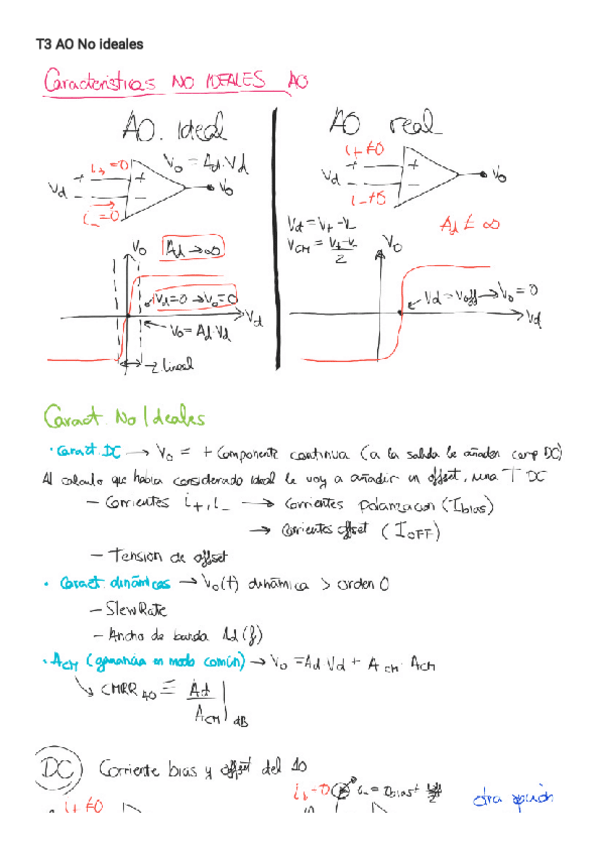 T3 AO No ideales
Características NO IDEALES AO
AO. Ideal
AO real
i+=0
Vo = Ad·Vd
Vd
+
-
Vo
i_=0
i+≠0
+
-
Vo
i_≠0
Vd = V+ - V-
VCM = V+-V- / 2
Ad ≠ ∞
Vo
Ad → ∞
Vd=0 → Vo=0
Vo = Ad·Vd
Vd
Z lineal
Vo
Vd = Voff → Vo = 0
Vd
Caract. No Ideales
· Caract. DC → Vo = + Componente continua (a la salida le añaden comp DC)
Al calculo que habia considerado ideal le voy a añadir un offset, una T DC
- Corrientes i+, i- → Corrientes polarizacion (Ibias)
→ Corrientes offset (IOFF)
- Tension de offset
· Caract. dinámicas → Vo(t) dinámica > orden 0
- Slew Rate
- Ancho de banda Ad(f)
· ACM (ganancia en modo común) → Vo = Ad Vd + ACM · ACM
CMRR AO ≡ Ad / ACM | dB
DC Corriente bias y offset del AO
i+ ≠0
otra opción